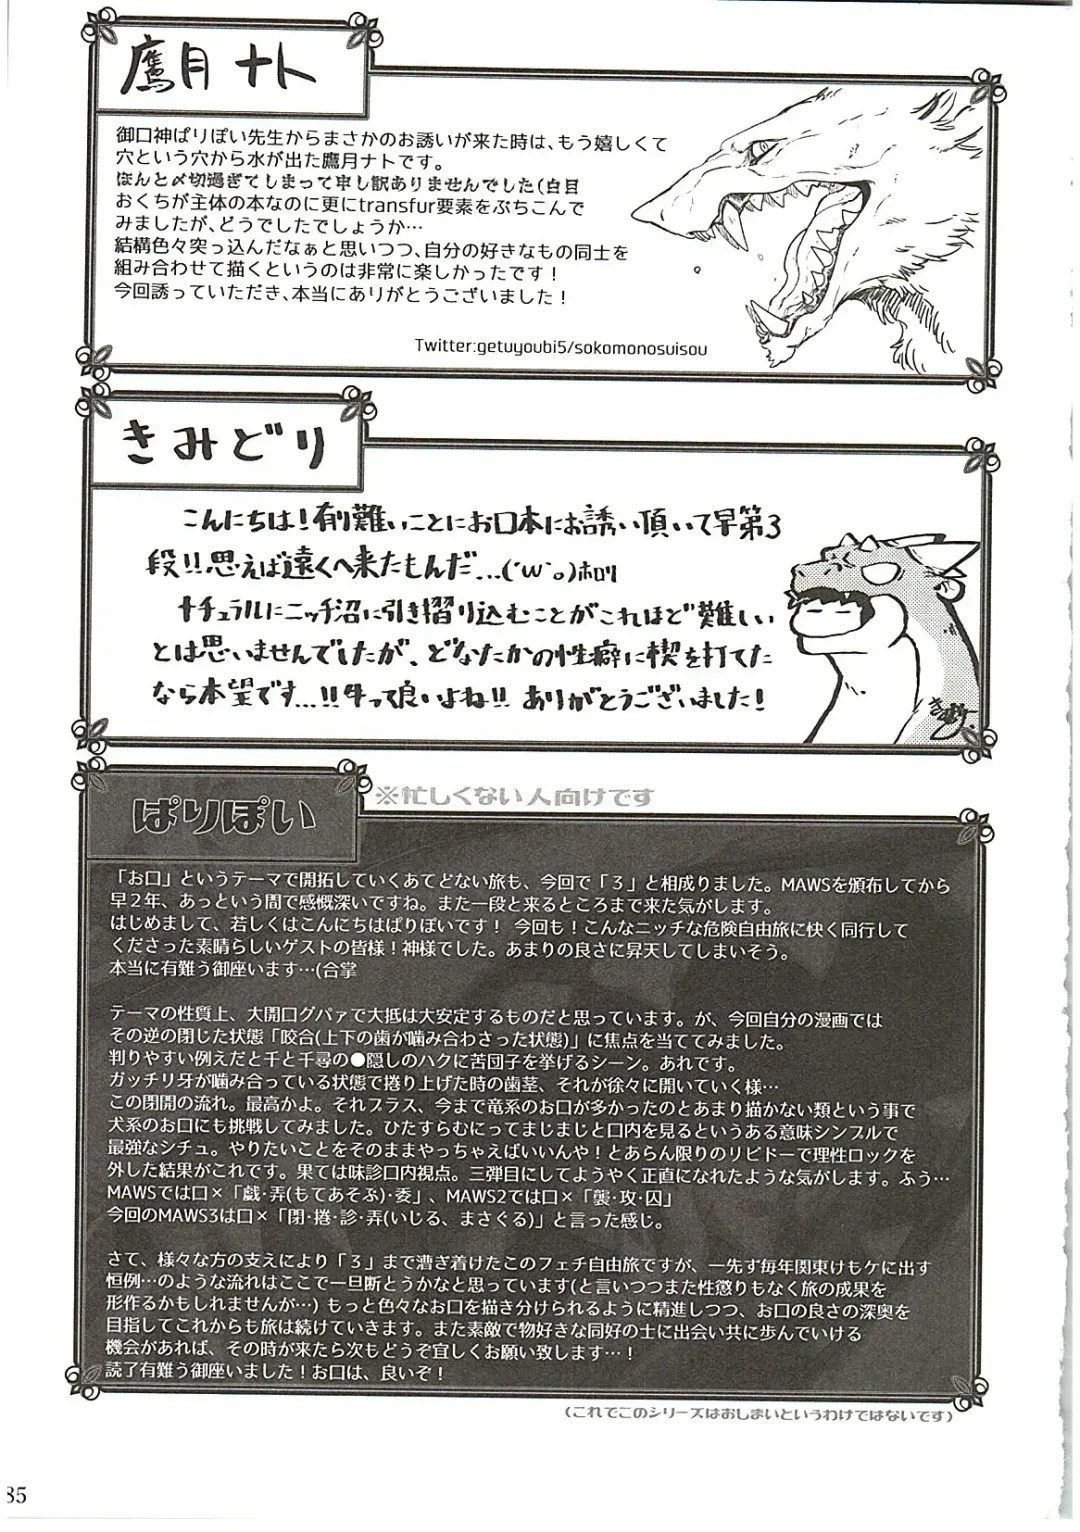 鷹月ナト
御口神ぱりぽい先生からまさかのお誘いが来た時は、もう嬉しくて
穴という穴から水が出た鷹月ナトです。
ほんと〆切過ぎてしまって申し訳ありませんでした(白目
おくちが主体の本なのに更にtransfur要素をぶちこんで
みましたが、どうでしたでしょうか…
結構色々突っ込んだなぁと思いつつ、自分の好きなもの同士を
組み合わせて描くというのは非常に楽しかったです！
今回誘っていただき、本当にありがとうございました！
Twitter:getuyoubi5/sokomonosuisou
きみどり
こんにちは！有り難いことにお口本にお誘い頂いて早第3
段!!思えば遠くへ来たもんだ...(´ω`｡)ﾎﾛﾘ
ナチュラルにニッチ沼に引き摺り込むことがこれほど難しい
とは思いませんでしたが、どなたかの性癖に楔を打てた
なら本望です...!!牛って良いよね!!ありがとうございました！
ぱりぽい
※忙しくない人向けです
「お口」というテーマで開拓していくあてどない旅も、今回で「3」と相成りました。MAWSを頒布してから
早2年、あっという間で感慨深いですね。また一段と来るところまで来た気がします。
はじめまして、若しくはこんにちはぱりぽいです！ 今回も！こんなニッチな危険自由旅に快く同行して
くださった素晴らしいゲストの皆様！神様でした。あまりの良さに昇天してしまいそう。
本当に有難う御座います…(合掌
テーマの性質上、大開口グパァで大抵は大安定するものだと思っています。が、今回自分の漫画では
その逆の閉じた状態「咬合(上下の歯が噛み合わさった状態)」に焦点を当ててみました。
判りやすい例えだと千と千尋の●隠しのハクに苦団子を挙げるシーン。あれです。
ガッチリ牙が噛み合っている状態で捲り上げた時の歯茎、それが徐々に開いていく様…
この閉開の流れ。最高かよ。それプラス、今まで竜系のお口が多かったのとあまり描かない類という事で
犬系のお口にも挑戦してみました。ひたすらむにってまじまじと口内を見るというある意味シンプルで
最強なシチュ。やりたいことをそのままやっちゃえばいいんや！とあらん限りのリビドーで理性ロックを
外した結果がこれです。果ては味診口内視点。三弾目にしてようやく正直になれたような気がします。ふう…
MAWSでは口×「戯･弄(もてあそぶ)･委」、MAWS2では口×「襲･攻･囚」
今回のMAWS3は口×「閉･捲･診･弄(いじる、まさぐる)」と言った感じ。
さて、様々な方の支えにより「3」まで漕ぎ着けたこのフェチ自由旅ですが、一先ず毎年関東けもケに出す
恒例…のような流れはここで一旦断とうかなと思っています(と言いつつまた性懲りもなく旅の成果を
形作るかもしれませんが…) もっと色々なお口を描き分けられるように精進しつつ、お口の良さの深奥を
目指してこれからも旅は続けていきます。また素敵で物好きな同好の士に出会い共に歩んでいける
機会があれば、その時が来たら次もどうぞ宜しくお願い致します…！
読了有難う御座いました！お口は、良いぞ！
(これでこのシリーズはおしまいというわけではないです)
85